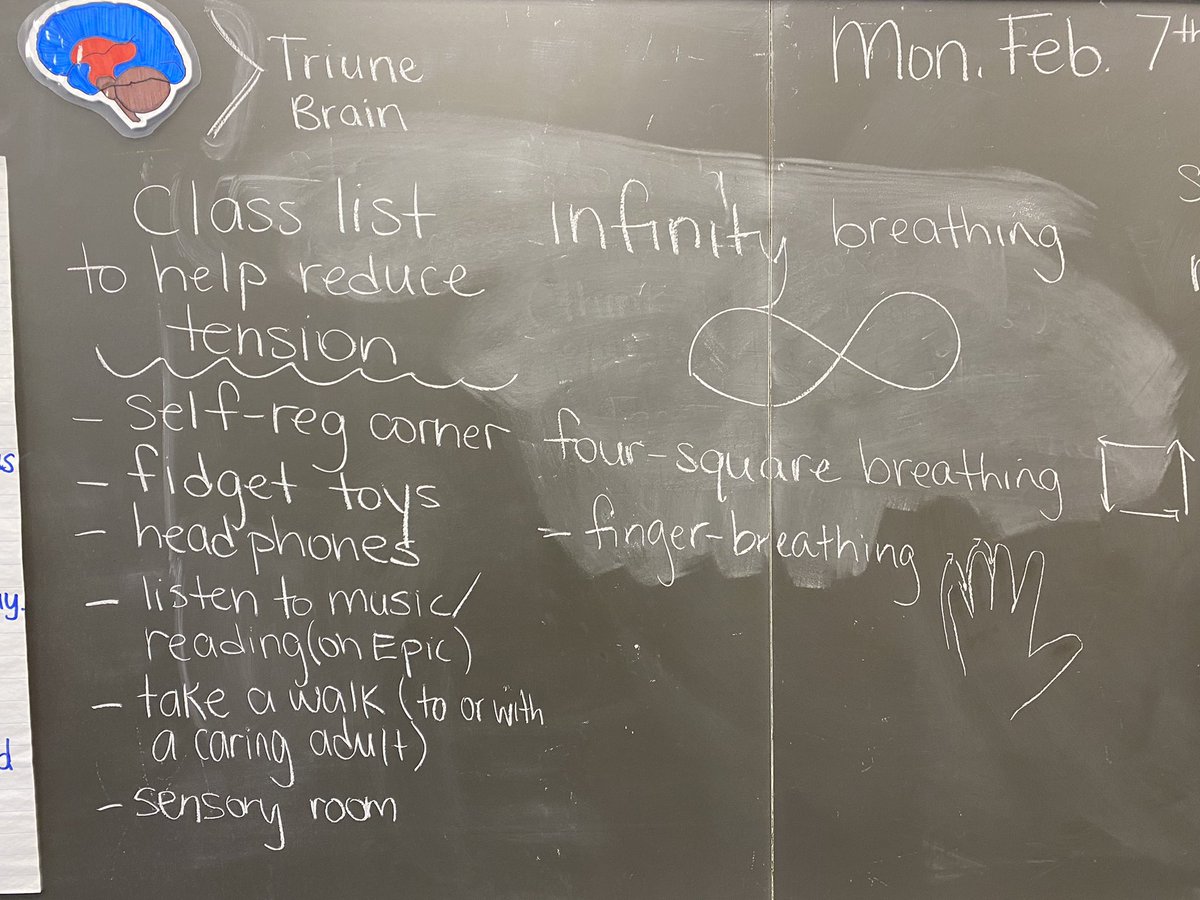 Triune
Brain
Mon. Feb. 7th
Class list
to help reduce
tension
- self-reg corner
- fidget toys
- headphones
- listen to music/
reading (on Epic)
- take a walk (to or with
a caring adult)
- sensory room
Infinity breathing
four-square breathing
- finger-breathing